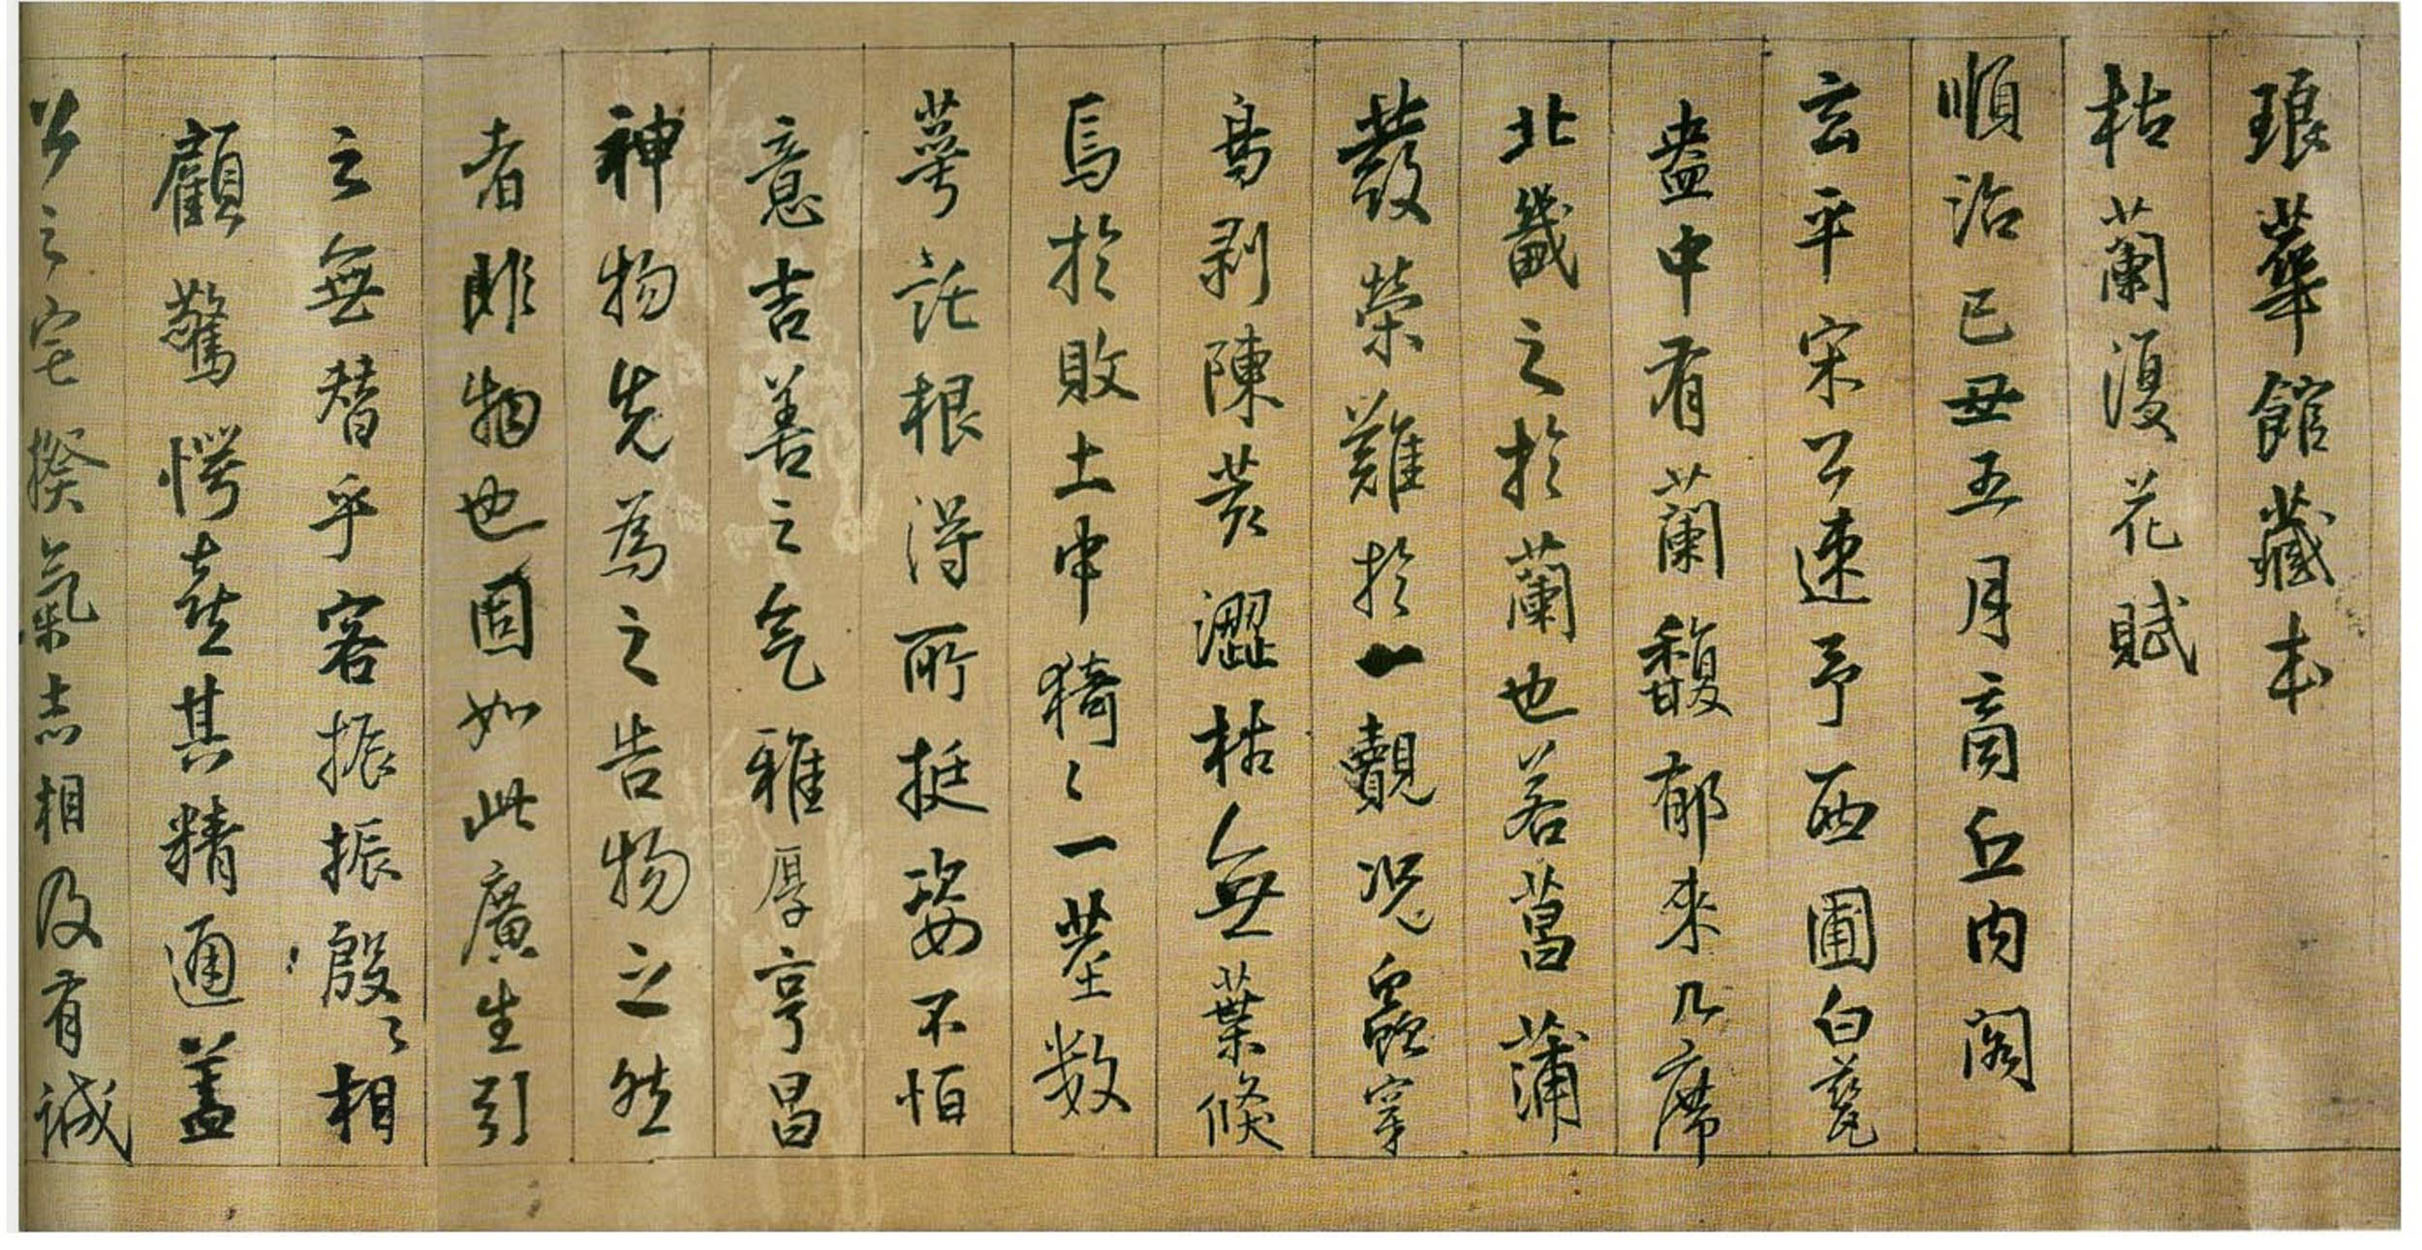 琅華館藏本
枯蘭復花賦
順治己丑五月商丘內閣
玄平宋公速予西圃白甆
盎中有蘭馥郁來几席
北畿之於蘭也若菖蒲
發榮難於一覯況蟲穿
鳥剥陳荄澀枯無葉倏
焉於敗土中猗〻一莖数
萼託根得所挺姿不怕
意吉善之气雅厚亨昌
神物先為之告物之然
者雖物也固如此廣生引
之無替乎客振振殷〻相
顧驚愕熹其精通蓋
公之宅揆氣志相及有誠